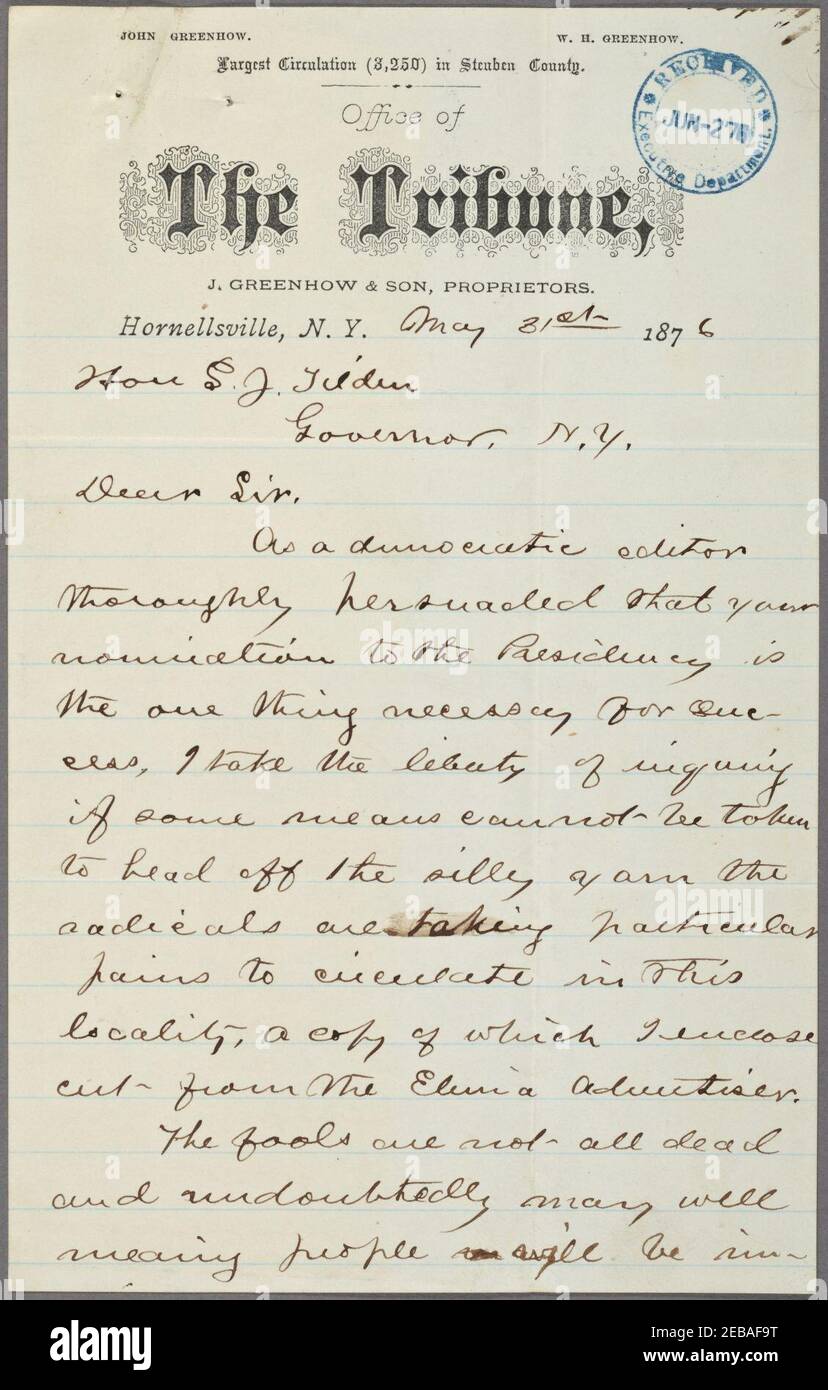 JOHN GREENHOW. W. H. GREENHOW.
Largest Circulation (3,250) in Steuben County.
Office of
The Tribune,
J. GREENHOW & SON, PROPRIETORS.
RECEIVED
JUN-2 76
Executive Department.
Hornellsville, N. Y. May 31st 1876
Hon S. J. Tilden
Governor, N.Y.
Dear Sir.
As a democratic editor
thoroughly persuaded that your
nomination to the Presidency is
the one thing necessary for suc-
cess, I take the liberty of inquiring
if some means cannot be taken
to head off the silly yarn the
radicals are taking particular
pains to circulate in this
locality, a copy of which I enclose
cut from the Elmira Advertiser.
The fools are not all dead
and undoubtedly many well
meaning people will be im-
alamy
alamy
alamy
Image ID: 2EBAF9T
www.alamy.com